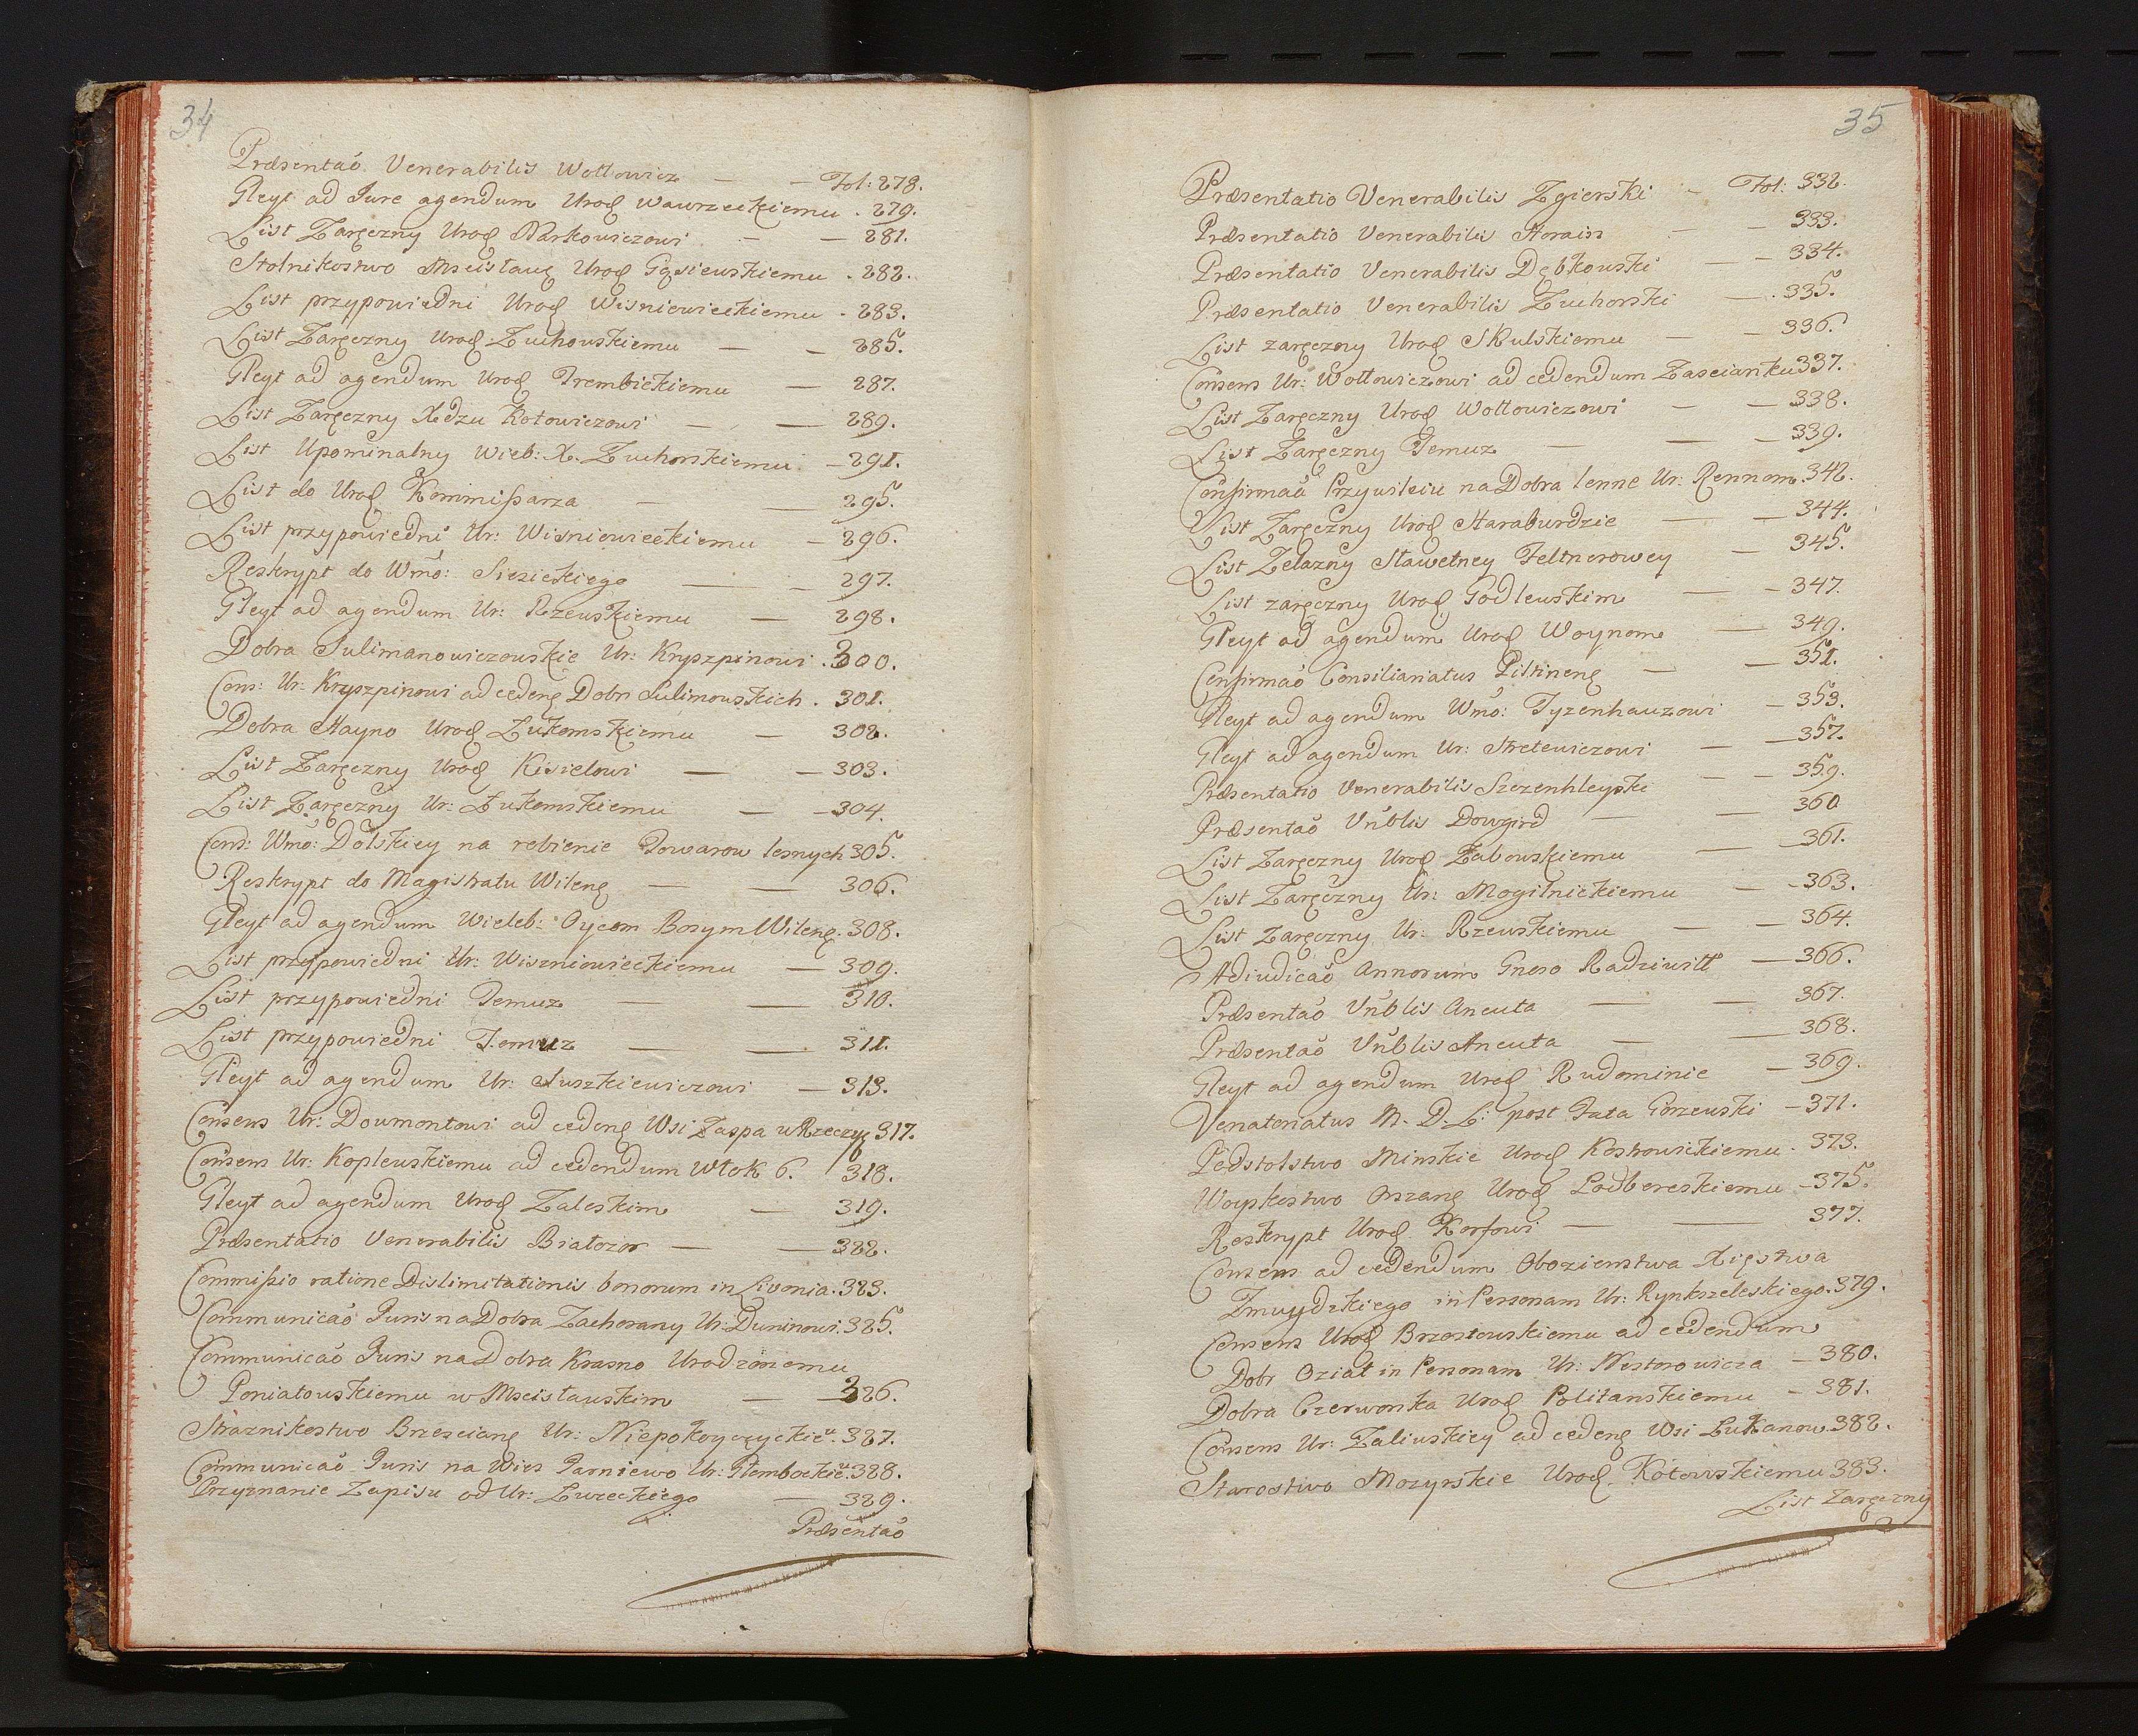 34
Præsentaō Venerabilis Wołłowicz — — Fol: 278.
Gleyt ad Jure agendum Uroḑ Wawrzeckiemu . 279.
List Zaręczny Uroḑ Narkowiczowi — — 281.
Stolnikostwo Mscisławȩ Uroḑ Gąsiewskiemu . 282.
List przypowiedni Uroḑ Wisniowieckiemu . 283.
List Zaręczny Uroḑ Zuchowskiemu — — 285.
Gleyt ad agendum Uroḑ Trembickiemu — 287.
List Zaręczny Xdzu Kotowiczowi — — 289.
List Upominalny Wieb: X. Zuchorskiemu — 291.
List do Uroḑ Kommißarza — — 295.
List przypowiedni Ur: Wisniowieckiemu — 296.
Reskrypt do Wmō: Siesickiego — — 297.
Gleyt ad agendum Ur: Rzewskiemu — 298.
Dobra Sulimanowiczowskie Ur: Kryszpinowi . 300.
Cons: Ur: Kryszpinowi ad cedenȩ Dobr Sulimowskich . 301.
Dobra Hayno Uroḑ Łukomskiemu — 302.
List Zaręczny Uroḑ Kisielowi — — 303.
List Zaręczny Ur: Łukomskiemu — — 304.
Cons: Wmō: Dolskiey na robienie Towarow lesnych 305.
Reskrypt do Magistratu Wilenȩ — — 306.
Gleyt ad agendum Wieleb: Oycom Bosym Wilenȩ. 308.
List przypowiedni Ur: Wiszniowieckiemu — 309.
List przypowiedni Temuz — — 310.
List przypowiedni Temuz — — 311.
Gleyt ad agendum Ur: Suszkiewiczowi — 313.
Consens Ur: Dowmontowi ad cedenȩ Wsi Zaspa w Rzeczyc 317.
Consens Ur: Koplewskiemu ad cedendum Włok 6. 318.
Gleyt ad agendum Uroḑ Zaleskim — 319.
Præsentatio Venerabilis Białozor — — 322.
Commißio ratione Dislimitationis bonorum in Livonia. 323.
Communicaō Juris na Dobra Zachorany Ur: Duninowi. 325.
Communicaō Juris na Dobra Krasno Urodzonemu
Poniatowskiemu w Mscisławskim — 326.
Straznikostwo Brzescianȩ Ur: Niepokoyczyckieᵘ. 327.
Communicaō Juris na Wies Parniewo Ur: Głembockieᵘ. 328.
Przyznanie Zapisu od Ur: Luzeckiego — 329.
Præsentaō
35
Præsentatio Venerabilis Zgierski — Fol: 332.
Præsentatio Venerabilis Horain — — 333.
Præsentatio Venerabilis Dębkowski — — 334.
Præsentatio Venerabilis Zuchorski — . 335.
List zaręczny Uroḑ Skulskiemu — — 336.
Consens Ur: Wołłowiczowi ad cedendum Zascianku 337.
List Zaręczny Uroḑ Wołłowiczowi — — 338.
List Zaręczny Temuz — — — 339.
Confirmaō Przywileiu na Dobra lenne Ur: Rennom. 342.
List Zaręczny Uroḑ Haraburdzie — — 344.
List Zelazny Sławetney Feltnerowey — 345.
List zaręczny Uroḑ Godlewskim — — 347.
Gleyt ad agendum Uroḑ Woynom — 349.
Confirmaō Consiliariatus Piltinenȩ — — 351.
Gleyt ad agendum Wmō: Tyzenhauzowi — 353.
Gleyt ad agendum Ur: Stretowiczowi — — 357.
Præsentatio Venerabilis Szczenhleyski — — 359.
Præsentaō Vnblis Dowgird — — 360
List Zaręczny Uroḑ Zabowskiemu — — 361.
List Zaręczny Ur: Mogilnickiemu — — 363.
List Zaręczny Ur: Rzewskiemu — — 364.
Adiudicaō Annorum Gnoso Radziwiłł — 366.
Præsentaō Vnblis Ancuta — — 367.
Præsentaō Vnblis Ancuta — — 368.
Gleyt ad agendum Uroḑ Rudominie — 369.
Venatoriatus M. D. L: post Fata Gorzewski — 371.
Podstolstwo Minskie Uroḑ Kostrowickiemu . 373.
Woyskostwo Orszanȩ Uroḑ Podbereskiemu — 375.
Reskrypt Uroḑ Korfowi — — 377.
Consens ad cedendum Obozienstwa Xięstwa
Zmuydzkiego in Personam Ur: Rynkszeleskiego. 379.
Consens Uroḑ Brzostowskiemu ad cedendum
Dobr Oziat in Personam Ur: Nestorowicza — 380.
Dobra Czerwonka Uroḑ Politanskiemu — 381.
Consens Ur: Zaliwskiey ad cedenȩ Wsi Lukanow 382.
Starostwo Mozyrskie Uroḑ Kotowskiemu 383.
List Zaręczny